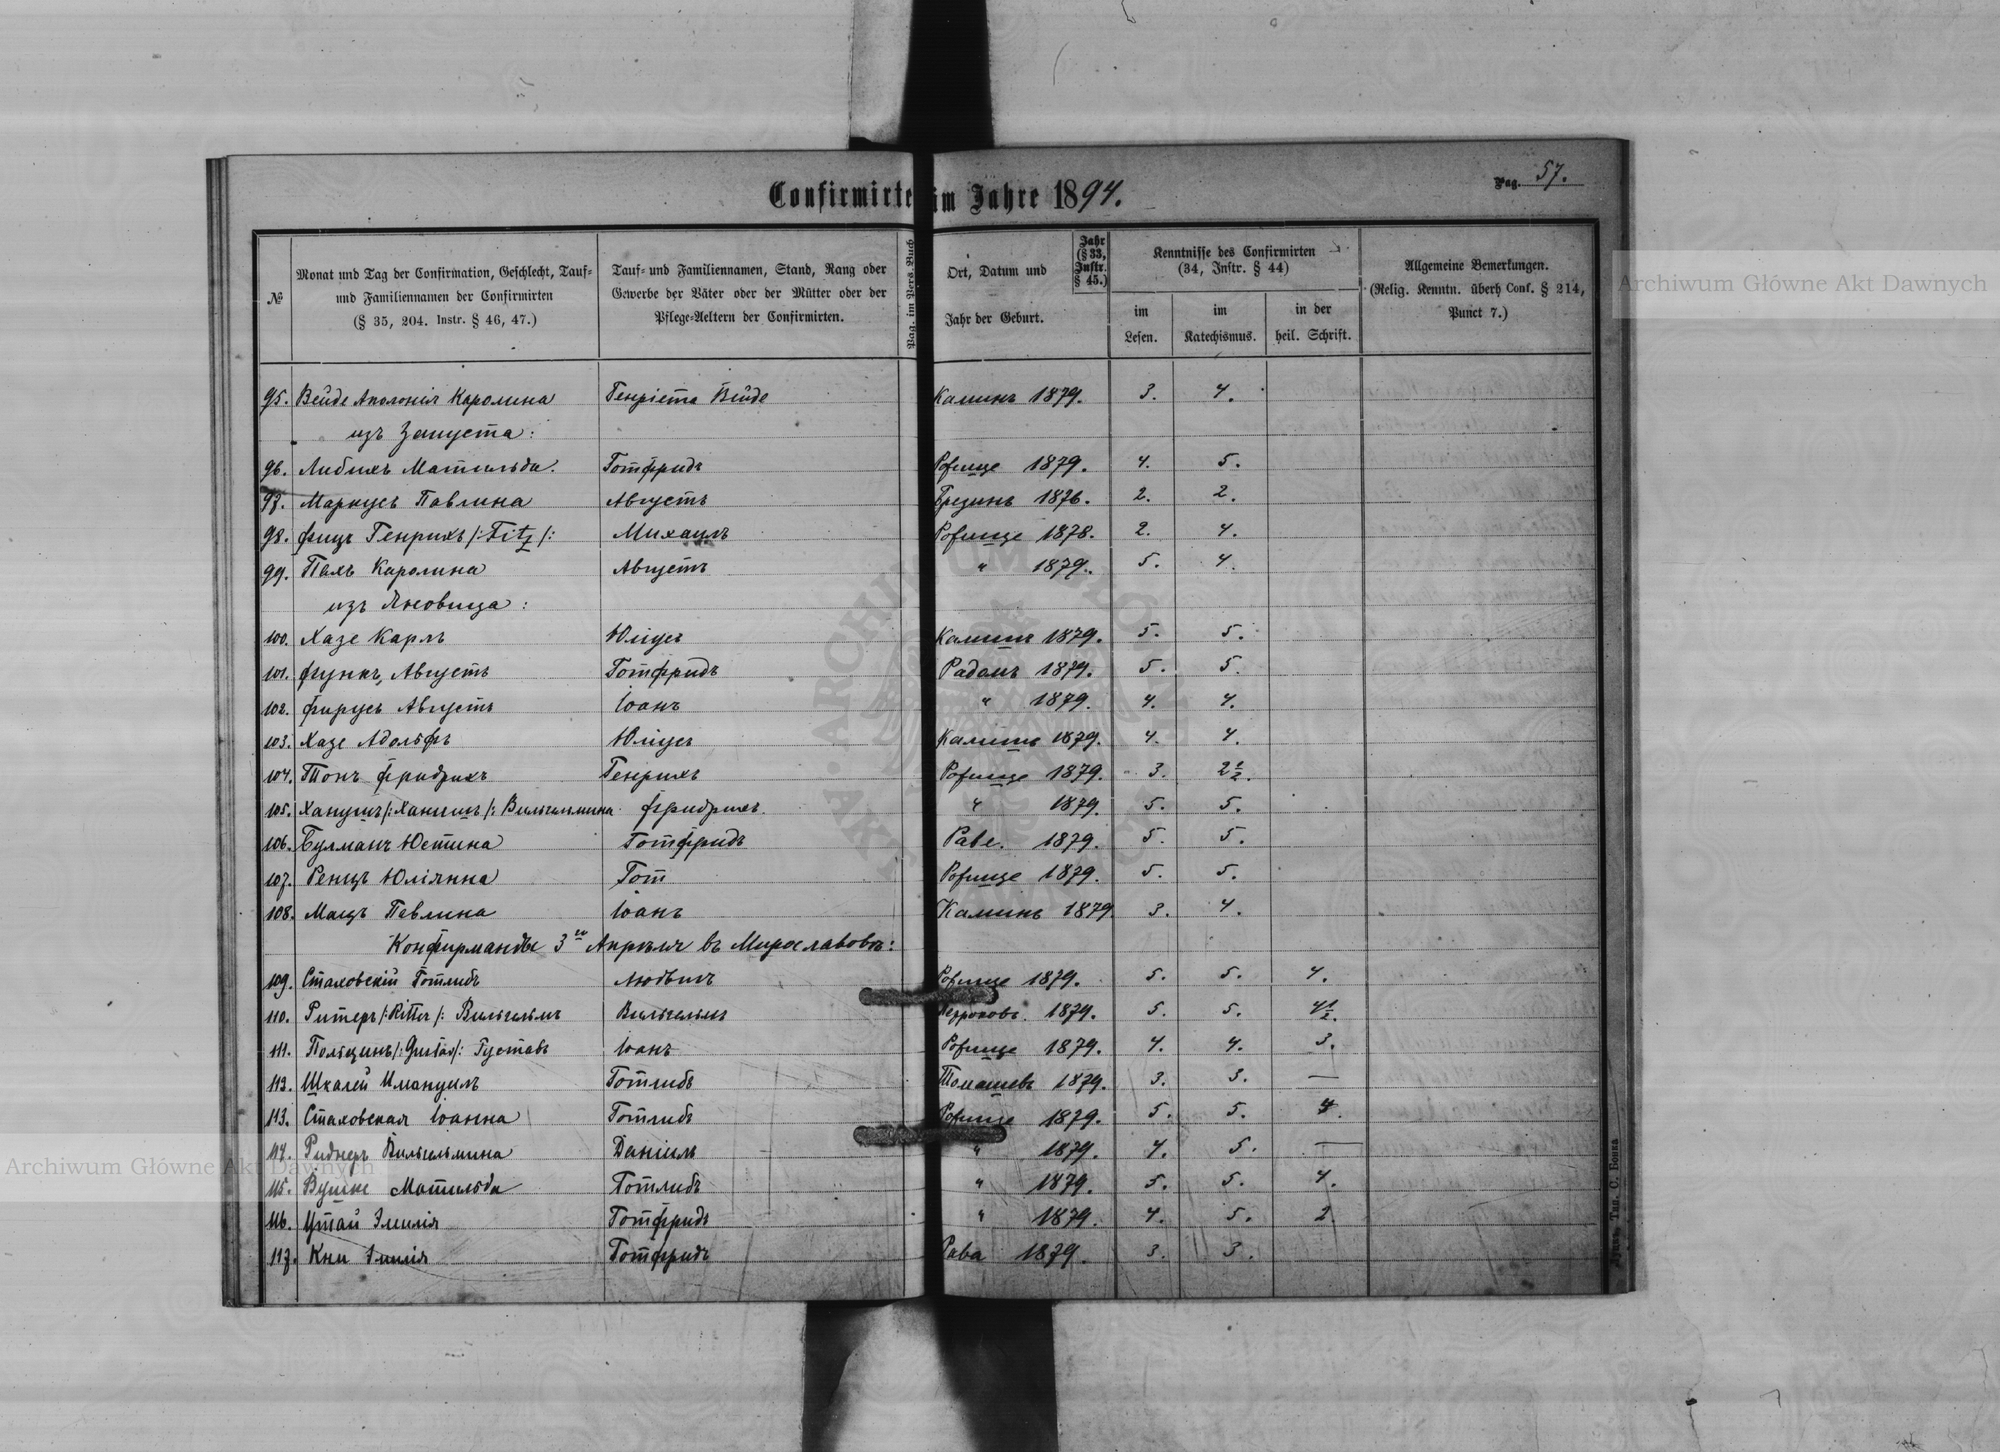 Confirmirte im Jahre 1894.
Pag. 57.
№
Monat und Tag der Confirmation, Geschlecht, Tauf-
und Familiennamen der Confirmirten
(§ 35, 204. Instr. § 46, 47.)
Tauf- und Familiennamen, Stand, Rang oder
Gewerbe der Väter oder der Mütter oder der
Pflege-Aeltern der Confirmirten.
Pag. im Pers. Buch
Ort, Datum und
Jahr der Geburt.
Jahr
(§ 33,
Instr.
§ 45.)
Kenntnisse des Confirmirten
(34, Instr. § 44)
im
Lesen.
im
Katechismus.
in der
heil. Schrift.
Allgemeine Bemerkungen.
(Relig. Kenntn. überh Conf. § 214,
Punct 7.)
95. Вейде Аполонія Каролина Генріета Вейде Камінь 1879. 3. 4.
изъ Запуста:
96. Либихъ Матильда. Готфридъ Рожище 1879. 4. 5.
97. Маркусъ Павлина Августъ 1876. 2. 2.
98. Фицъ Генрихъ /:Fitz/: Михаилъ Рожище 1878. 2. 4.
99. Пахъ Каролина Августъ " 1879. 5. 4.
изъ Яновица:
100. Хазе Карлъ Юліусъ 1879. 5. 5.
101. Функъ, Августъ Готфридъ Радомъ 1879. 5. 5.
102. Фирусъ Августъ Іоанъ " 1879. 4. 4.
103. Хазе Адольфъ Юліусъ 1879. 4. 4.
104. Тонъ Фридрихъ Генрихъ Рожище 1879. 3. 2½.
105. Ханушъ /:Ханишъ/: Вильгельмина Фридрихъ. " 1879. 5. 5.
106. Булманъ Юстина Готфридъ Раве. 1879. 5. 5.
107. Ренцъ Юліянна Гот Рожище 1879. 5. 5.
108. Мацъ Павлина Іоанъ Каминь 1879. 3. 4.
Конфирманды 3го Апрѣля въ Мирославовкѣ:
109. Стаховскій Готлибъ Людвигъ Рожище 1879. 5. 5. 4.
110. Ритеръ /:Ritter/: Вильгельмъ Вильгельмъ 1879. 5. 5. 4½.
111. /:Gustav/: Густавъ Іоанъ Рожище 1879. 4. 4. 3.
113. Шкалей Имануилъ Готлибъ Томашевъ 1879. 3. 3. —
113. Стаховская Іоанна Готлибъ Рожище 1879. 5. 5. 4.
114. Риднеръ Вильгельмина Даніилъ " 1879. 4. 5. —
115. Вушке Матильда Готлибъ " 1879. 5. 5. 4.
116. Утай Эмилія Готфридъ " 1879. 4. 5. 2.
117. Кни Эмилія Готфридъ Рава 1879. 3. 3.
Тип. С. Бона
Archiwum Główne Akt Dawnych
Archiwum Główne Akt Dawnych